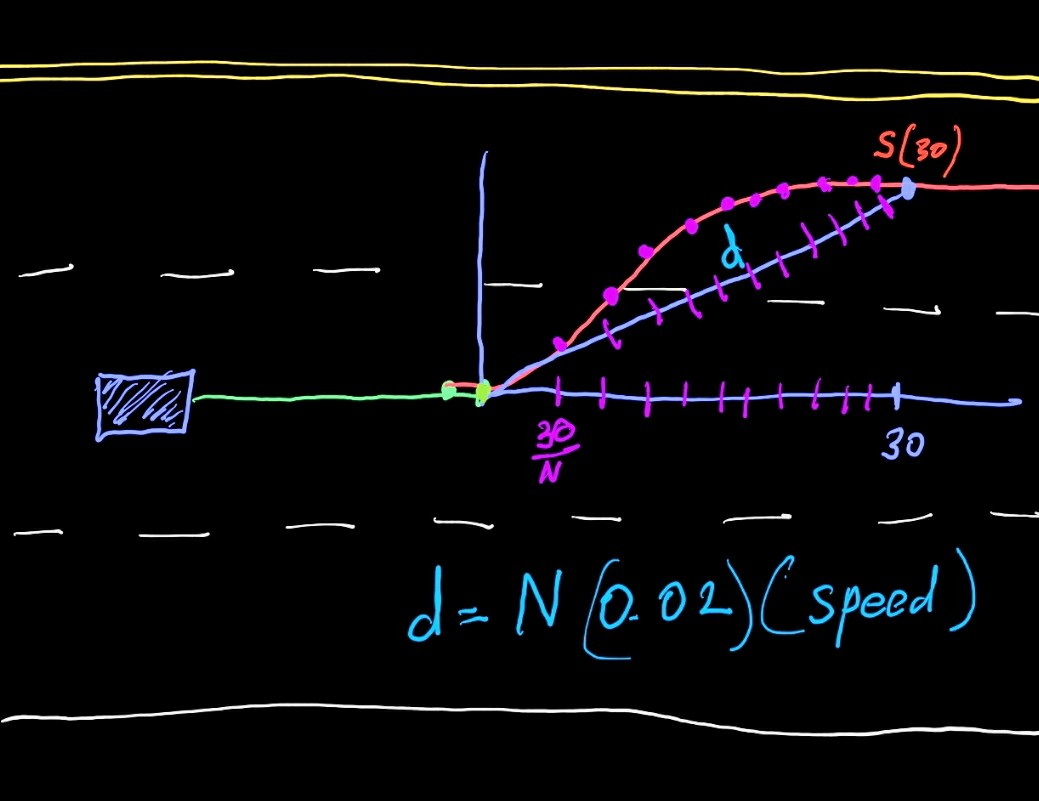 S(30)
d
30/N
30
d = N(0.02)(speed)